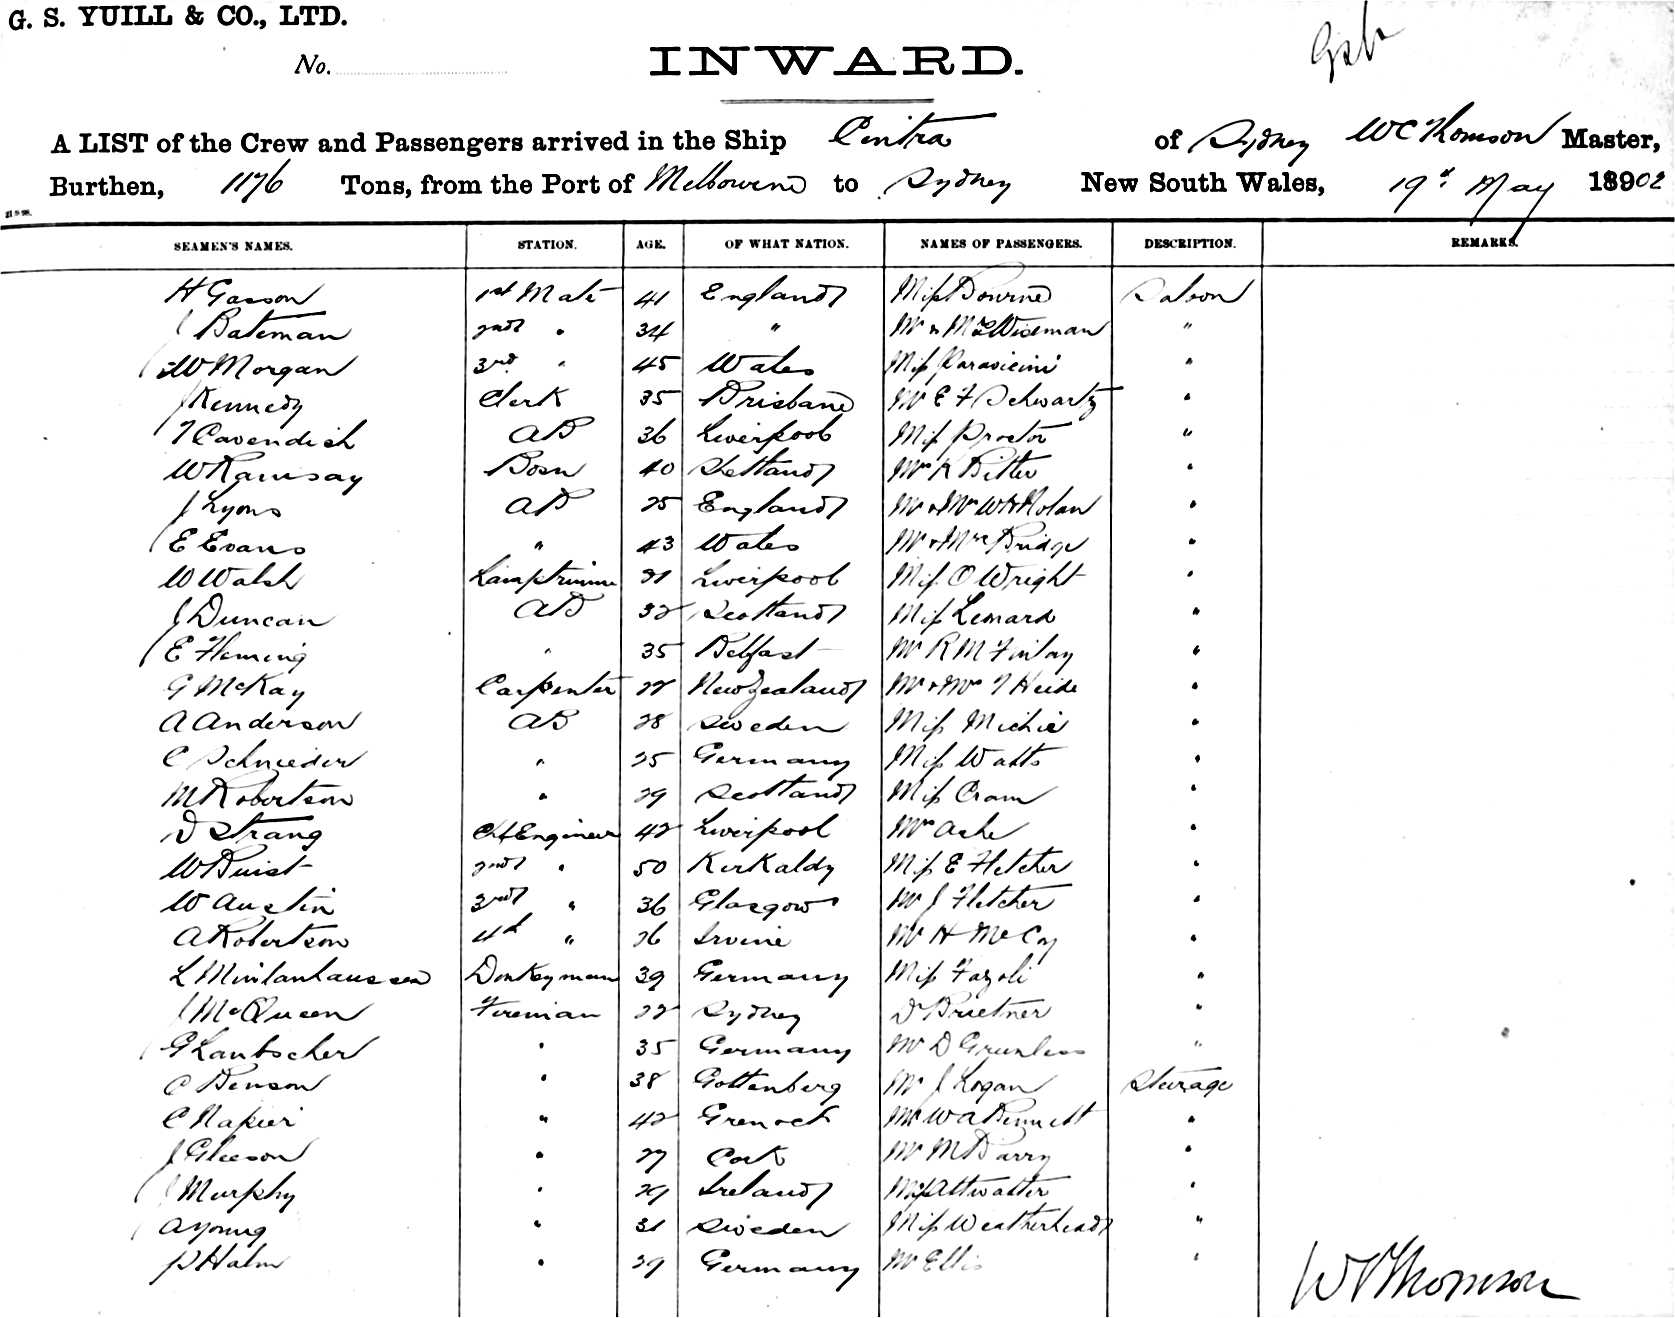 G. S. YUILL & CO., LTD.
No.
INWARD.
A LIST of the Crew and Passengers arrived in the Ship Cintra of Sydney WC Thomson Master,
Burthen, 1176 Tons, from the Port of Melbourne to Sydney New South Wales, 19th May 18902
SEAMEN'S NAMES. STATION. AGE. OF WHAT NATION. NAMES OF PASSENGERS. DESCRIPTION. REMARKS.
H Gasson 1st Mate 41 England Miss Bourne Saloon
J Bateman 2nd " 34 " Mr & Mrs Wiseman "
W Morgan 3rd " 45 Wales Miss Paravicini "
J Kennedy Clerk 35 Brisbane Mr E F Schwartz "
T Cavendish AB 36 Liverpool Miss Proctor "
W Ramsay Bosn 40 Shetland Mr K Bitter "
J Lyons AB 25 England Mr & Mrs W H Nolan "
E Evans " 43 Wales Mr & Mrs Bridge "
W Walsh Lamptrimmer 21 Liverpool Miss O Wright "
J Duncan AB 32 Scotland Miss Leonard "
E Fleming " 35 Belfast Mr R M Finlay "
G McKay Carpenter 22 New Zealand Mr & Mrs T Heide "
A Anderson AB 28 Sweden Miss Michie "
C Schnieder " 25 Germany Miss Watts "
M Robertson " 29 Scotland Miss Cram "
D Strang Ch Engineer 42 Liverpool Mrs Ashe "
W Buist 2nd " 50 Kirkaldy Miss E Fletcher "
W Austin 3rd " 36 Glasgow Mr J Fletcher "
A Robertson 4th " 26 Irvine Mr H McCoy "
L Donkeyman 39 Germany Miss Fazoli "
J McQueen Fireman 22 Sydney Dr "
G Laubscher " 35 Germany Mr D "
C Benson " 38 Gottenberg Mr J Logan Steerage
C Napier " 42 Grenock Mr W A Bennett "
J Gleeson " 27 Cork Mr M Barry "
J Murphy " 29 Ireland Miss Attwater "
A Young " 31 Sweden Miss Weatherhead "
P Halm " 39 Germany Mr Ellis "
WC Thomson